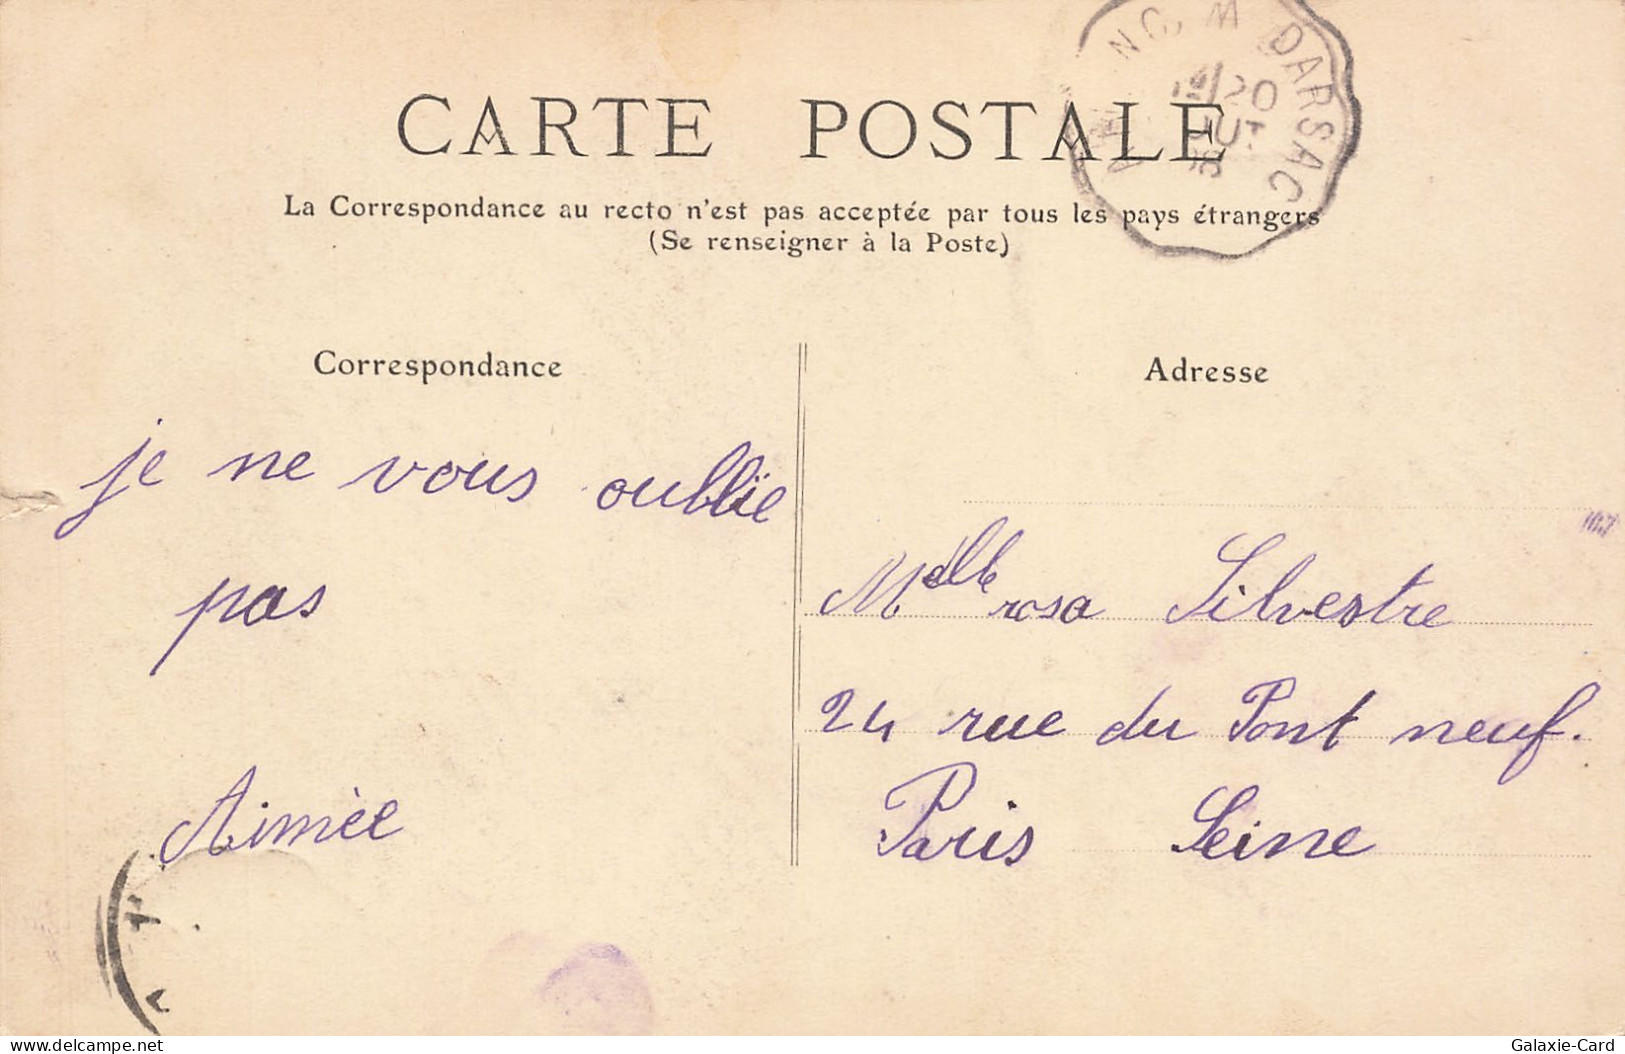 CARTE POSTALE
DARSAC
La Correspondance au recto n'est pas acceptée par tous les pays étrangers
(Se renseigner à la Poste)
Correspondance
je ne vous oublïe
pas
Aimèe
Adresse
Melle rosa Silvestre
24 rue du Pont neuf.
Paris Seine
delcampe.net
Galaxie-Card